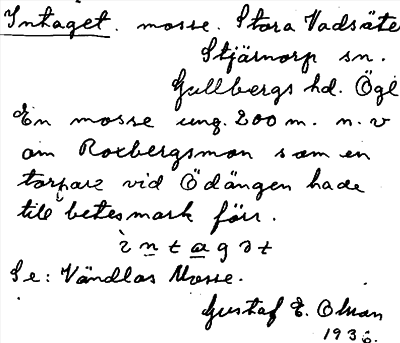 Intaget. mosse. Stora Vadsäte
Stjärnorp sn.
Gullbergs hd. Ögl
En mosse ung. 200 m. n. v
om Roxbergsmon som en
torpare vid Ödängen hade
till betesmark förr.
ì n t a g ə t
Se: Vändlas Mosse.
Gustaf E. Olson
1936.